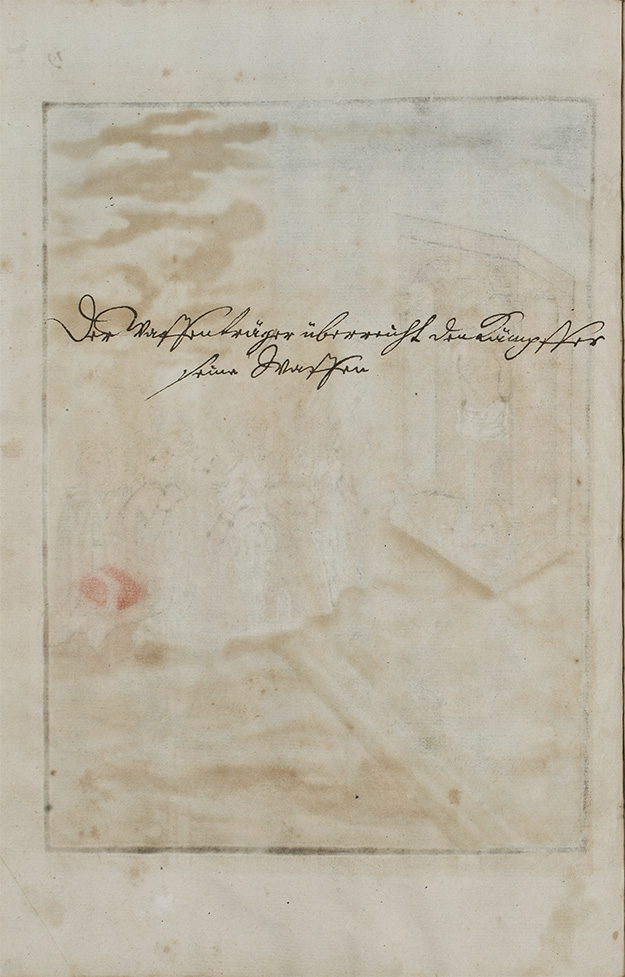 Der Waffenträger überreicht den Kämpffer
seine Waffen